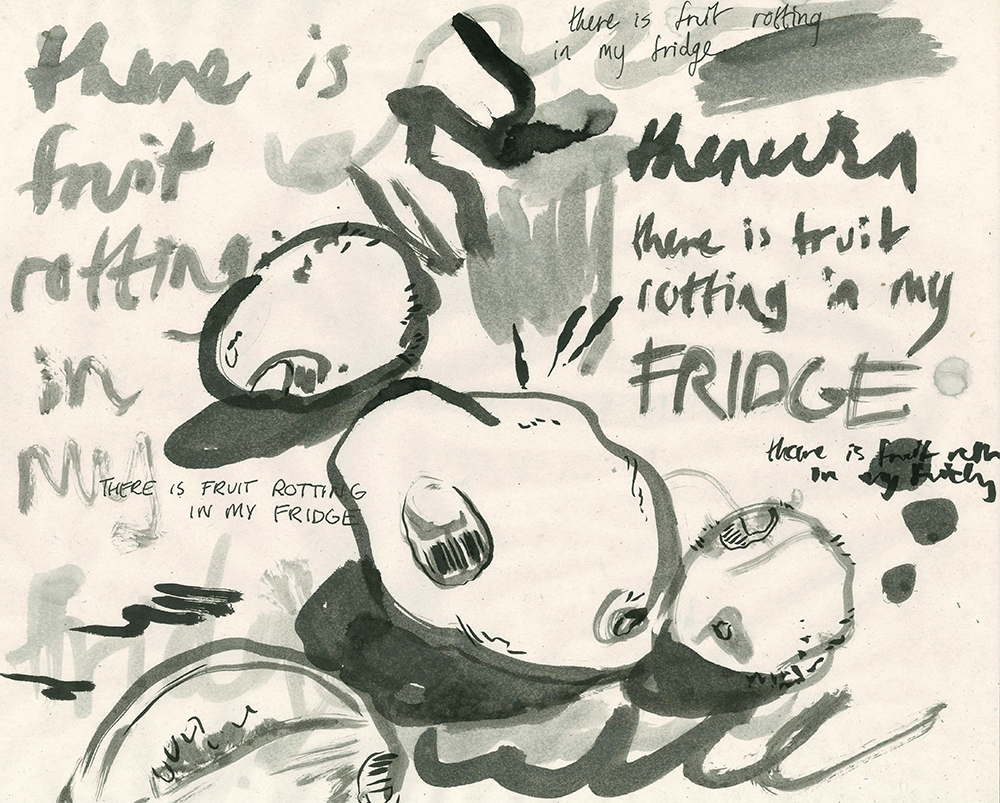 there is
fruit
rotting
in
my
fridge
there is fruit rotting
in my fridge
there is fruit
rotting in my
FRIDGE
there is fruit
in my
THERE IS FRUIT ROTTING
IN MY FRIDGE